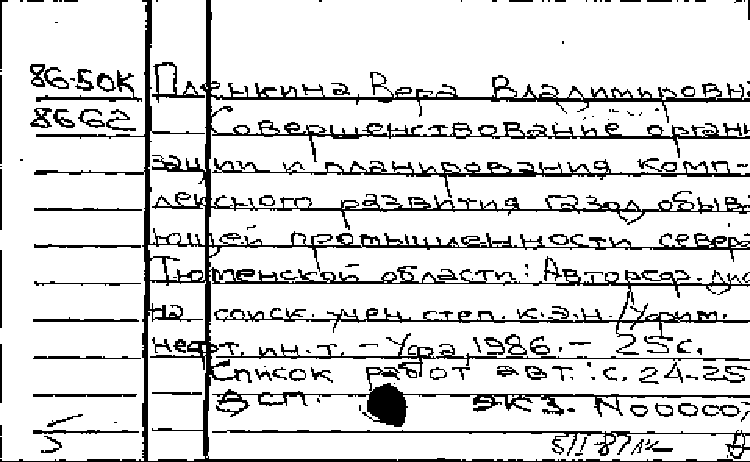 86-50К Пленкина, Вера Владимировна
8662 Совершенствование органи
зации и планирования комп-
лексного развития газодобыва
ющей промышленности севера
Тюменской области: Автореф. дис
на соиск. учен. степ. к.э.н. / Уфим.
нефт. ин-т. - Уфа, 1986. - 25 с.
Список работ авт.: с. 24-25
ДСП. экз. N 00000